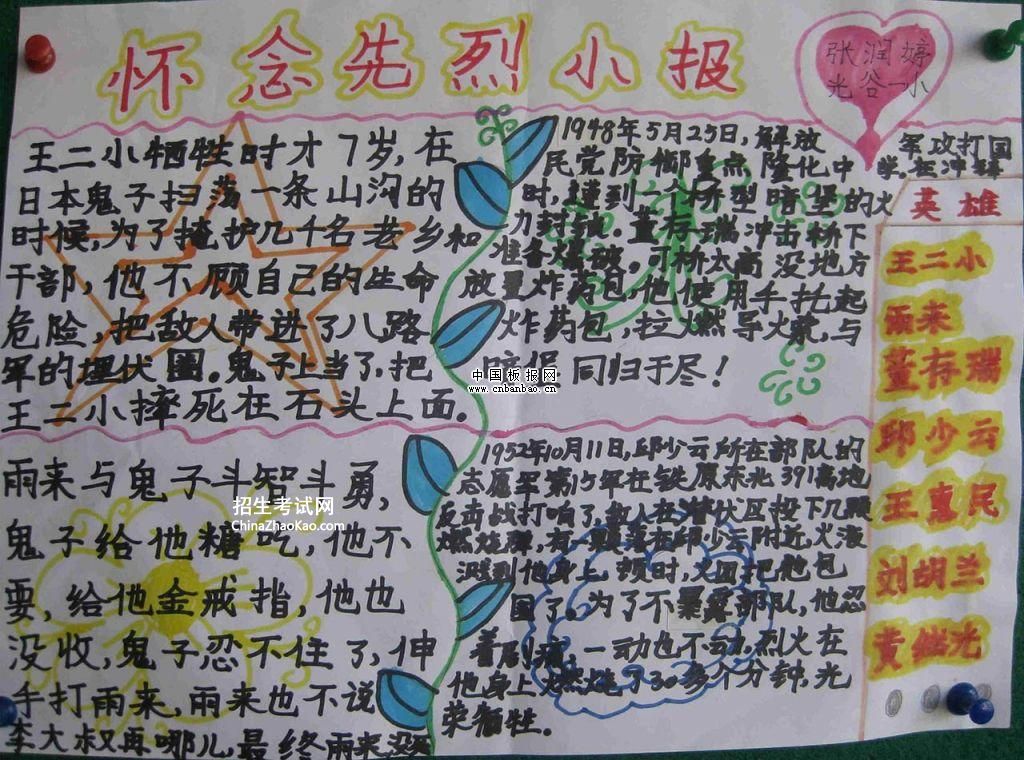 怀念先烈小报
张润婷
光谷一小
王二小牺牲时才7岁,在
日本鬼子扫荡一条山沟的
时候,为了掩护几千名老乡和
干部,他不顾自己的生命
危险,把敌人带进了八路
军的埋伏圈。鬼子上当了,把
王二小摔死在石头上面。
1948年5月25日,解放
军攻打国
民党防御重点隆化中
学,在冲锋
时,遭到一个桥型暗堡的火
力封锁。董存瑞冲击桥下
准备爆破。可桥太高没地方
放置炸药包,他使用手托起
炸药包,拉燃导火索,与
暗堡同归于尽!
中国板报网
www.cnbanbao.cn
雨来与鬼子斗智斗勇,
鬼子给他糖吃,他不
要,给他金戒指,他也
没收,鬼子忍不住了,伸
手打雨来,雨来也不说
李大叔再哪儿,最终雨来没死
招生考试网
ChinaZhaoKao.com
1952年10月11日,邱少云所在部队的
志愿军第15军在铁原东北391高地
反击战打响了,敌人在潜伏区投下几颗
燃烧弹,有一颗落在邱少云附近,火液
溅到他身上,顿时,火团把他包
围了。为了不暴露部队,他忍
着剧痛,一动也不动,烈火在
他身上燃烧了30多个分钟,光
荣牺牲。
英雄
王二小
雨来
董存瑞
邱少云
王惠民
刘胡兰
黄继光